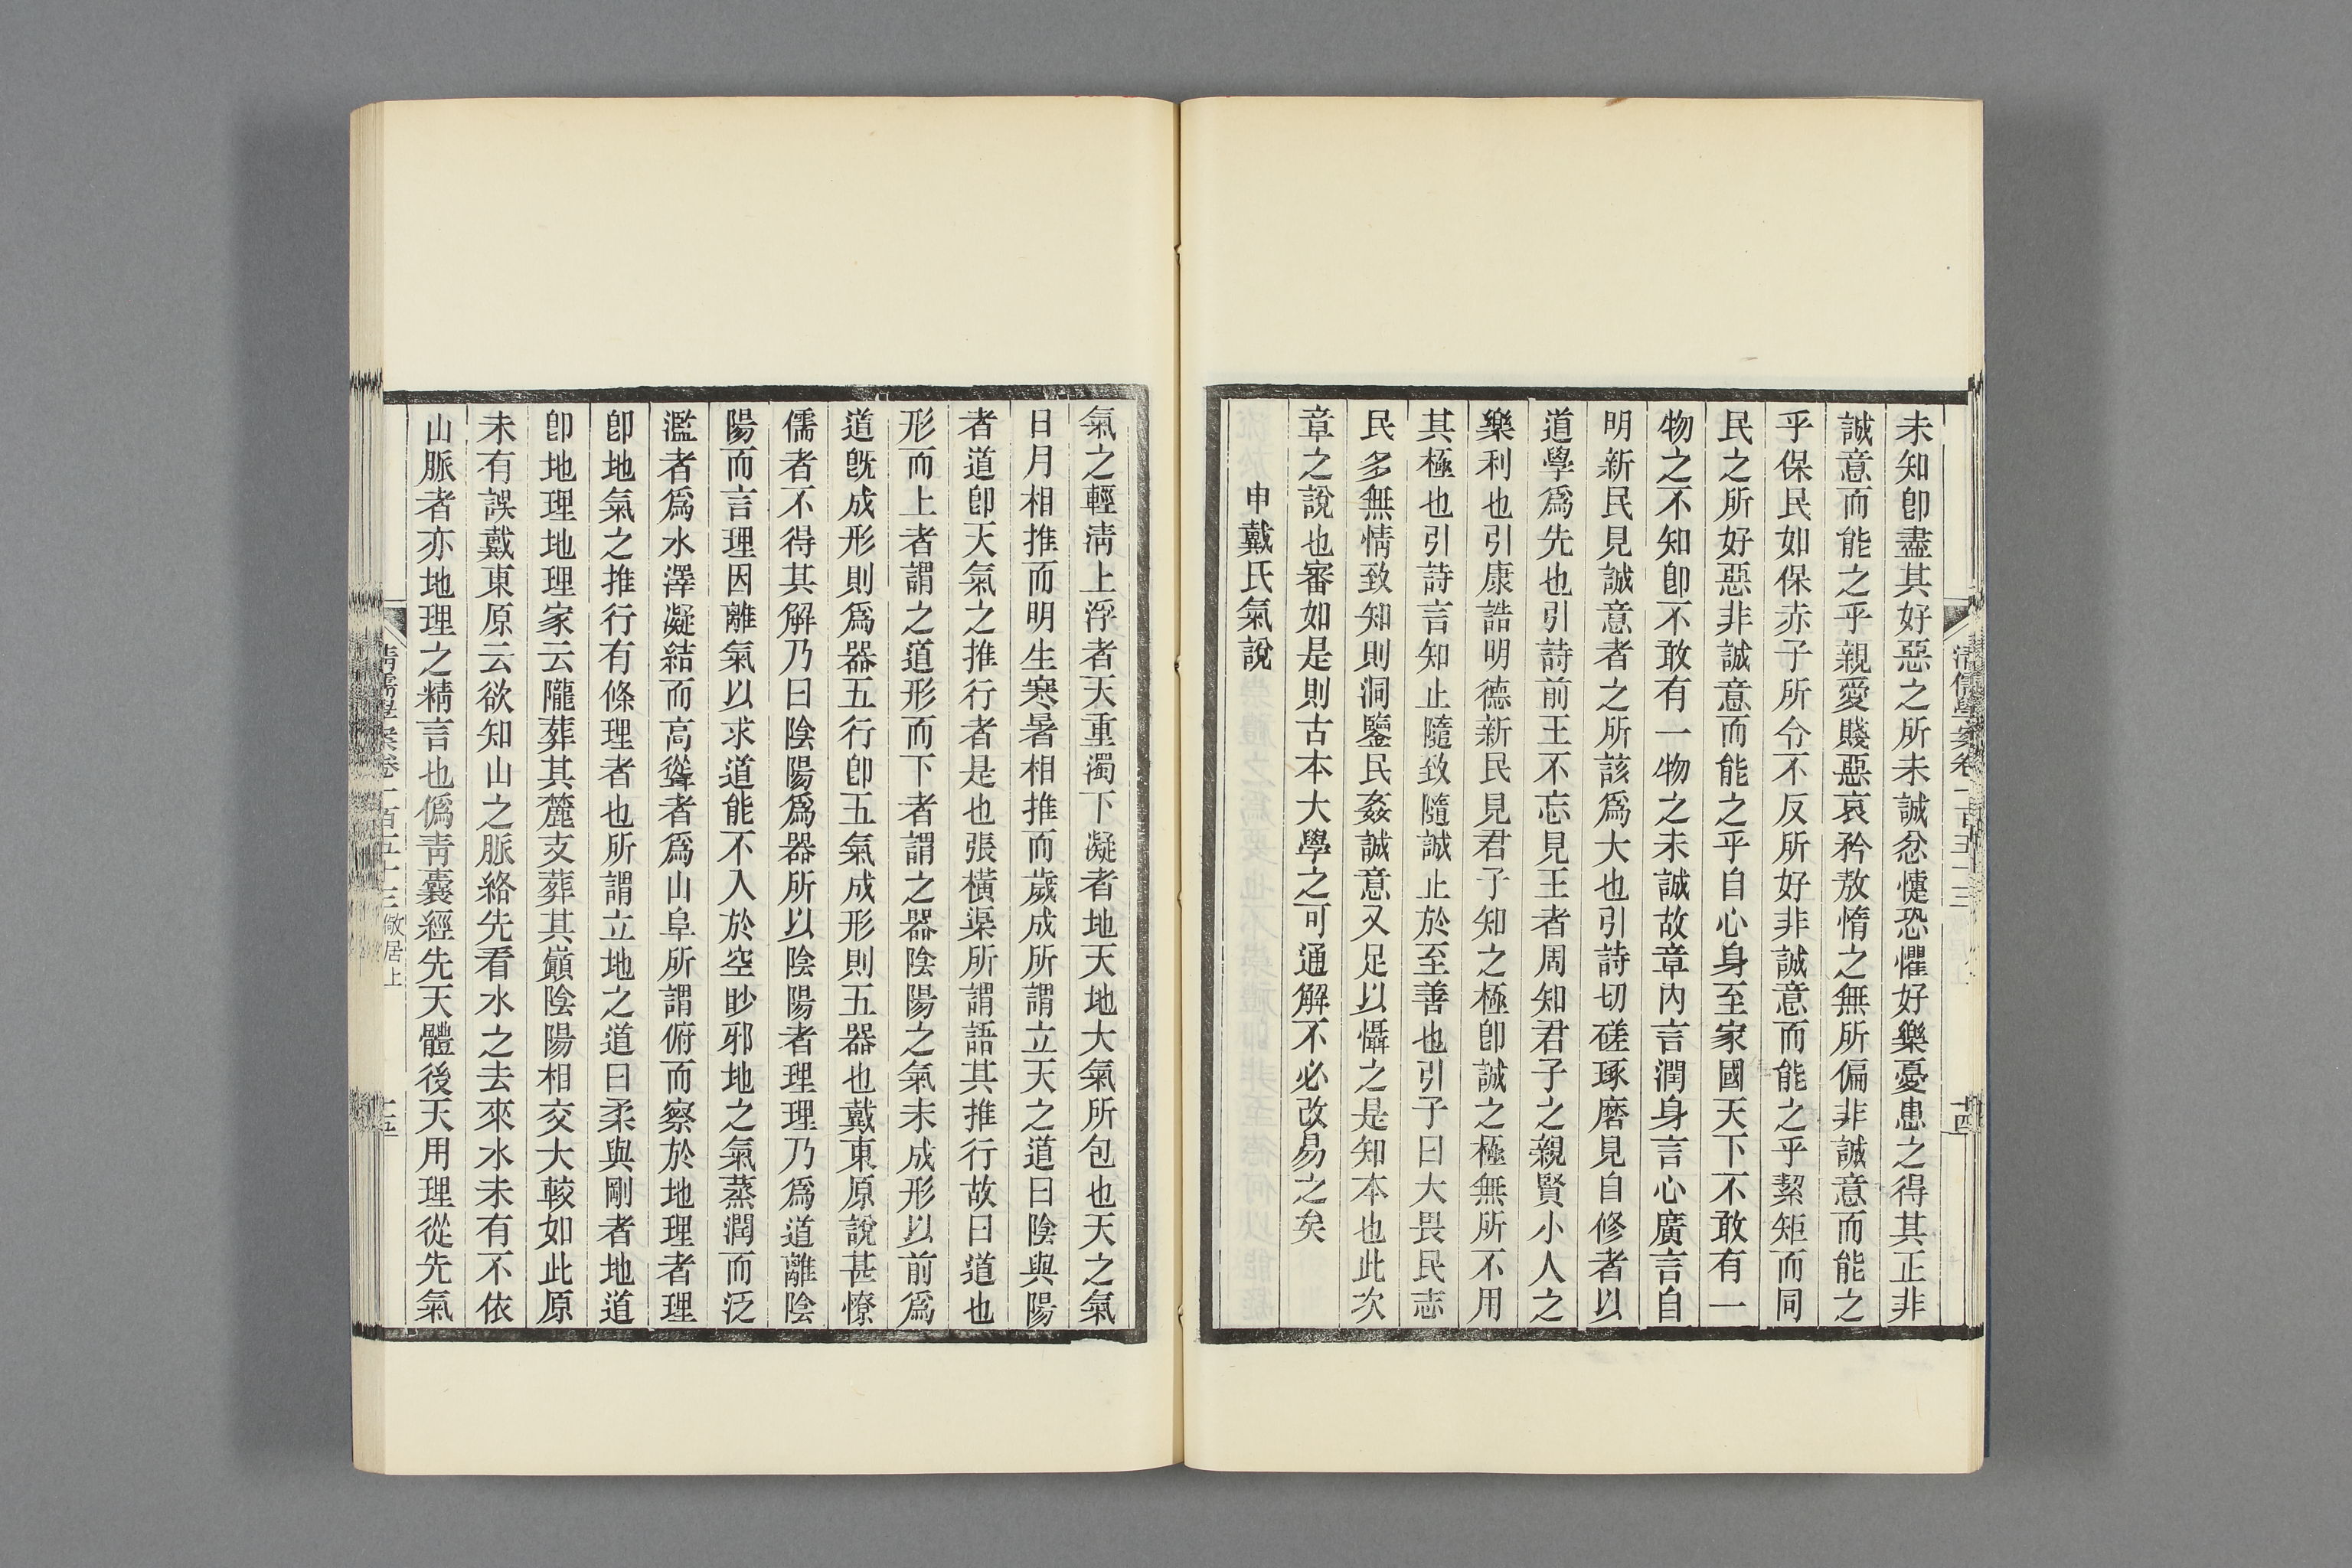 未知卽盡其好惡之所未誠忿懥恐懼好樂憂患之得其正非
誠意而能之乎親愛賤惡哀矜敖惰之無所偏非誠意而能之
乎保民如保赤子所令不反所好非誠意而能之乎絜矩而同
民之所好惡非誠意而能之乎自心身至家國天下不敢有一
物之不知卽不敢有一物之未誠故章內言潤身言心廣言自
明新民見誠意者之所該爲大也引詩切磋琢磨見自修者以
道學爲先也引詩前王不忘見王者周知君子之親賢小人之
樂利也引康誥明德新民見君子知之極卽誠之極無所不用
其極也引詩言知止隨致隨誠止於至善也引子曰大畏民志
民多無情致知則洞鑒民姦誠意又足以懾之是知本也此次
章之說也審如是則古本大學之可通解不必改易之矣
申戴氏氣說
氣之輕淸上浮者天重濁下凝者地天地大氣所包也天之氣
日月相推而明生寒暑相推而歲成所謂立天之道曰陰與陽
者道卽天氣之推行者是也張橫渠所謂語其推行故曰道也
形而上者謂之道形而下者謂之器陰陽之氣未成形以前爲
道旣成形則爲器五行卽五氣成形則五器也戴東原說甚憭
儒者不得其解乃曰陰陽爲器所以陰陽者理理乃爲道離陰
陽而言理因離氣以求道能不入於空眇邪地之氣蒸潤而泛
濫者爲水澤凝結而高聳者爲山阜所謂俯而察於地理者理
卽地氣之推行有條理者也所謂立地之道曰柔與剛者地道
卽地理地理家云隴葬其麓支葬其巓陰陽相交大較如此原
未有誤戴東原云欲知山之脈絡先看水之去來水未有不依
山脈者亦地理之精言也僞靑囊經先天體後天用理從先氣
淸儒學案卷二百五十三
十四
淸儒學案卷一百五十三 儆居上
十五